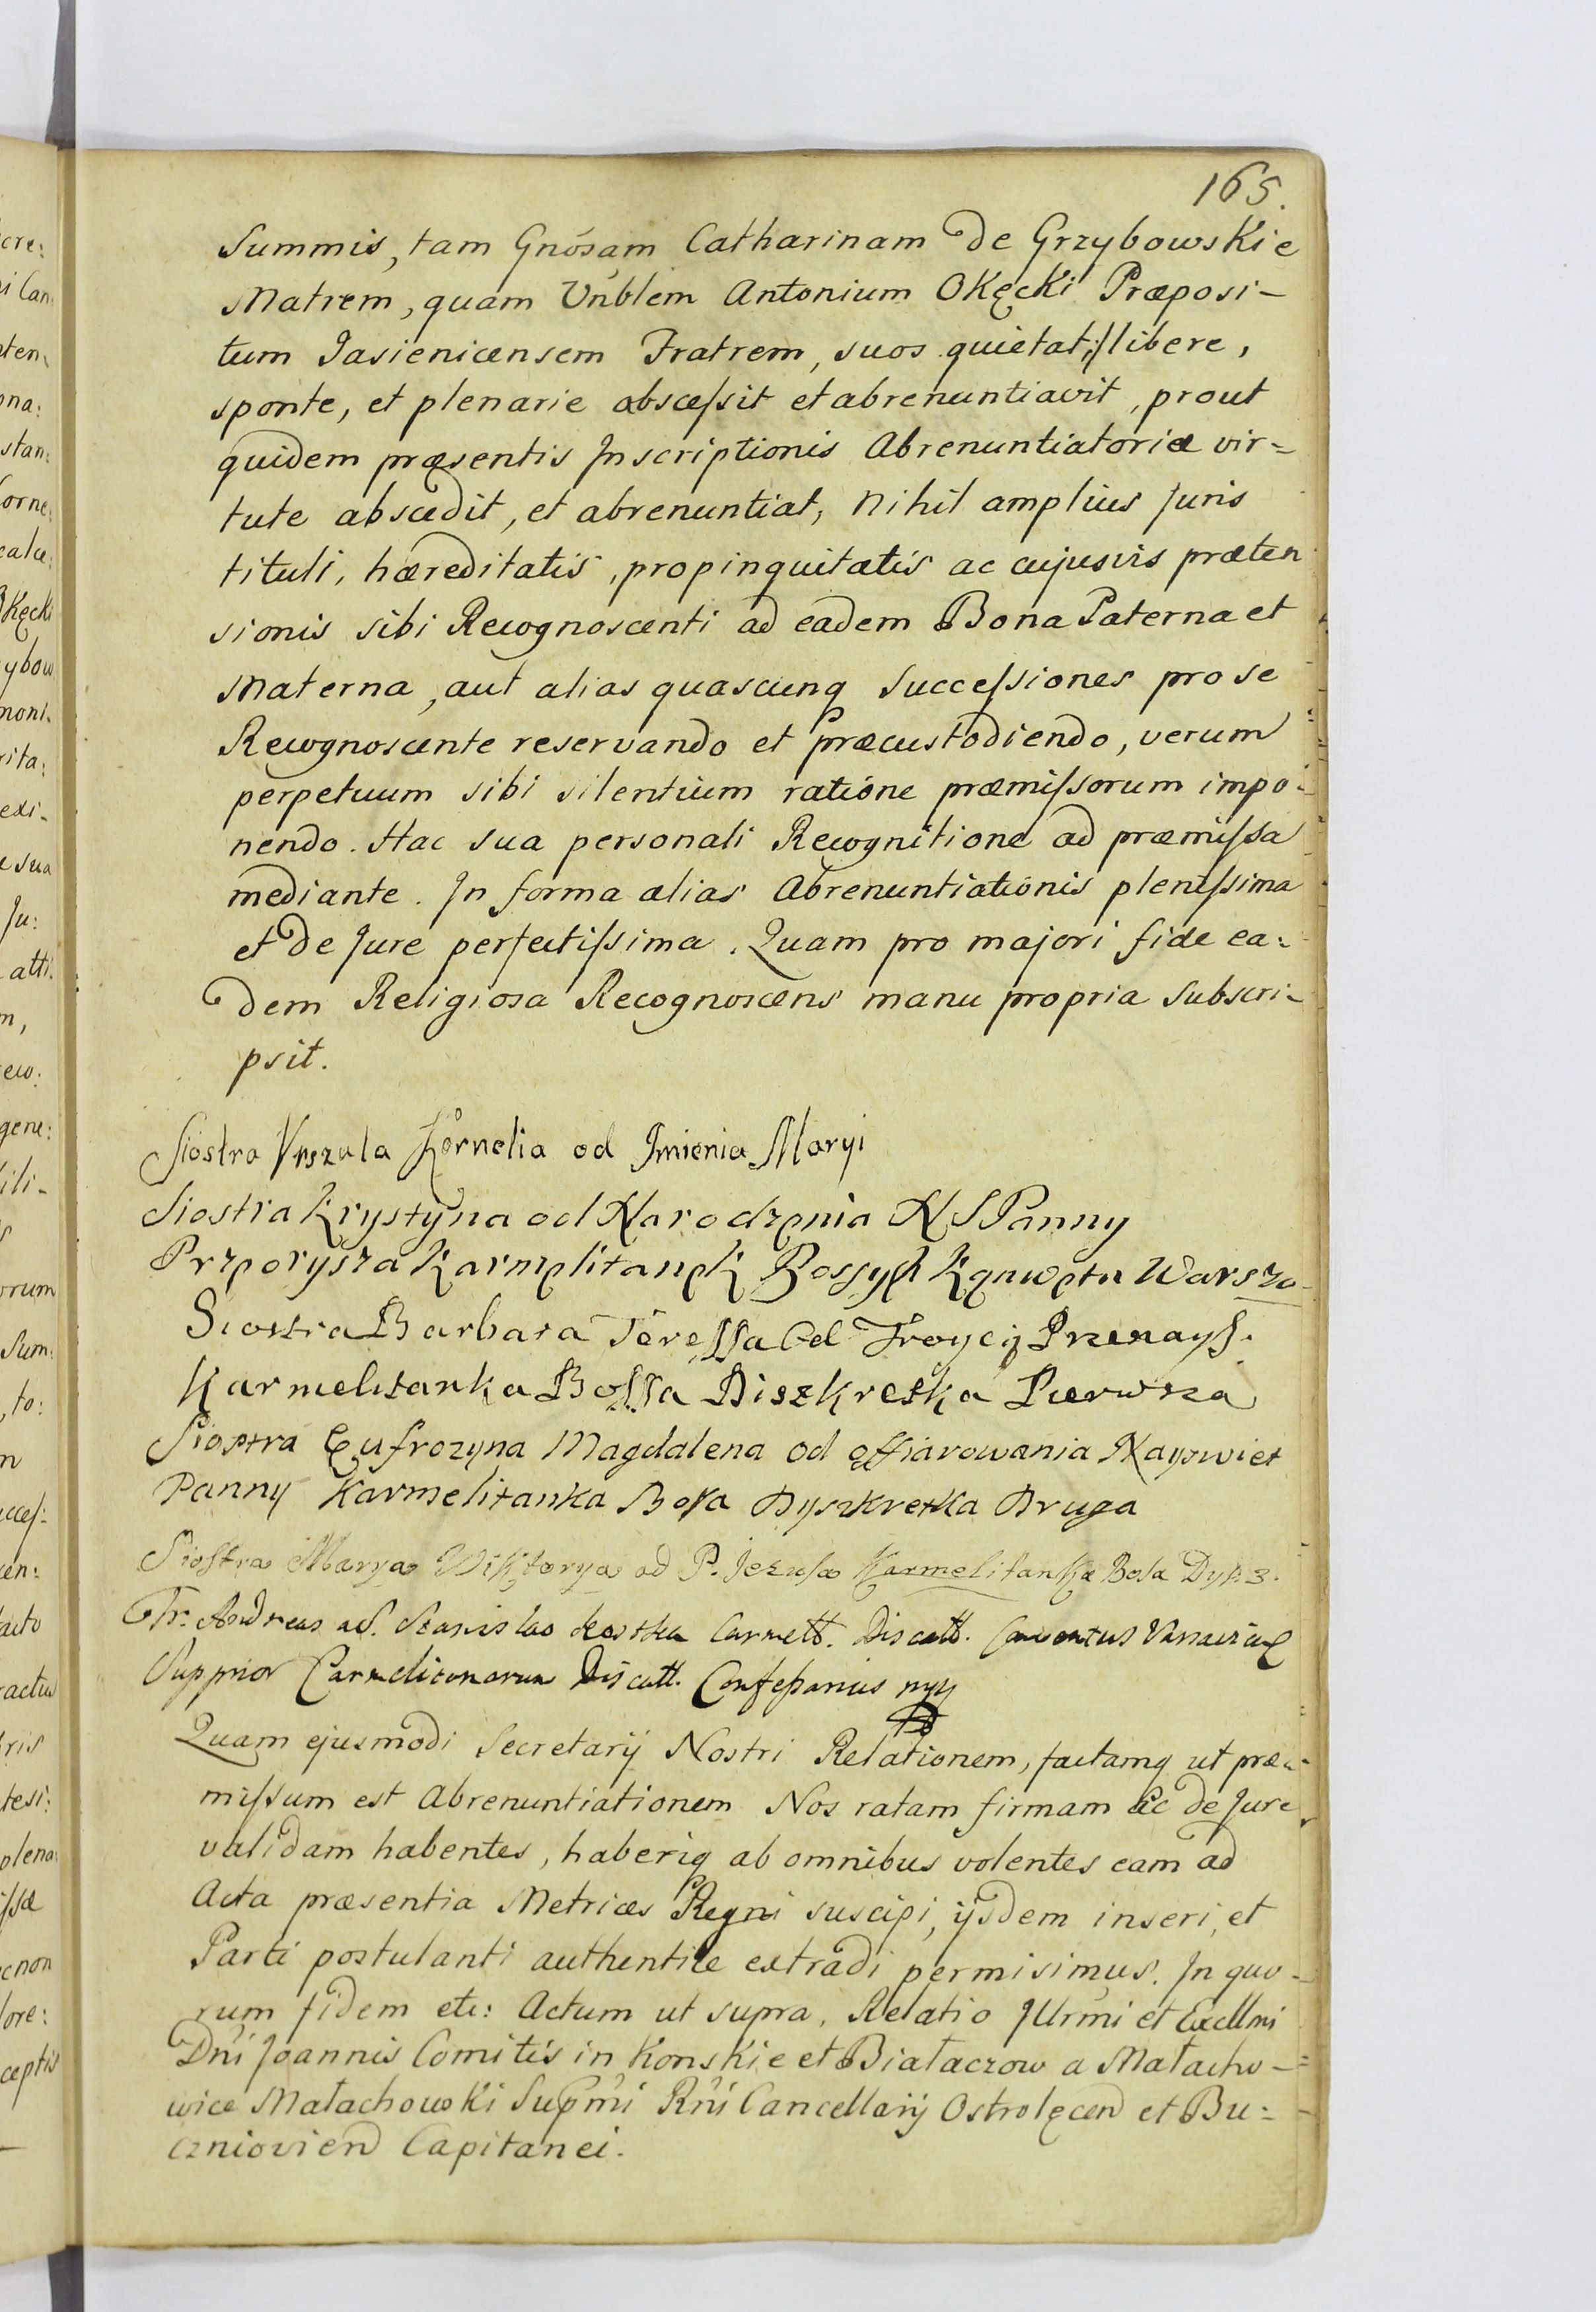 165.
Summis, tam Gnosam Catharinam de Grzybowskie
Matrem, quam Vnblem Antonium Okęcki Præposi-
tum Jasienicensem Fratrem, suos quietat:/ libere,
sponte, et plenarie abscessit et abrenuntiavit, prout
quidem præsentis Inscriptionis Abrenuntiatoriæ vir=
tute abscedit, et abrenuntiat, nihil amplius Juris
tituli, hæreditatis, propinquitatis ac cujusvis præten
sionis sibi Recognoscenti ad eadem Bona Paterna et
Materna, aut alias quascunq successiones pro se
Recognoscente reservando et præcustodiendo, verum
perpetuum sibi silentium ratione præmissorum impo-
nendo. Hac sua personali Recognitione ad præmissa
mediante. In forma alias Abrenuntiationis plenissima
et de Jure perfectissima. Quam pro majori fide ea=
dem Religiosa Recognoscens manu propria subscri-
psit.
Siostra Vrszula Kornelia od Imienia Maryi
Siostra Krystyna od Narodzenia N S Panny
Przeorysza Karmelitanek Bossych Konwentu Warsza-
Siostra Barbara Teressa Od Troycy Przenays.
Karmelitanka Bossa Diszkretka Pierwsza
Siostra Eufrozyna Magdalena od offiarowania Nayswiet
Panny Karmelitanka Bosa Dyszkretka Druga
Siostra Marya Wiktorya od P. Jezusa Karmelitanka Bosa Dys 3.
Fr. Andreas a S. Stanislao Kostka Carmelt. Discalt. Conventus
Supprior Carmelitanarum Discalt. Confessarius
Quam ejusmodi Secretarij Nostri Relationem, factamq ut præ-
missum est Abrenuntiationem Nos ratam firmam ac de Jure
validam habentes, haberiq ab omnibus volentes eam ad
Acta præsentia Metrices Regni suscipi, ijsdem inseri, et
Parti postulanti authentice extradi permisimus. In quo-
rum fidem etc: Actum ut supra, Relatio Jllrmi et Excllmi
Dni Joannis Comitis in Konskie et Białaczow a Małacho-
wice Małachowski Supmi Rni Cancellarij Ostrolęcen et Bu=
czniovien Capitanei.